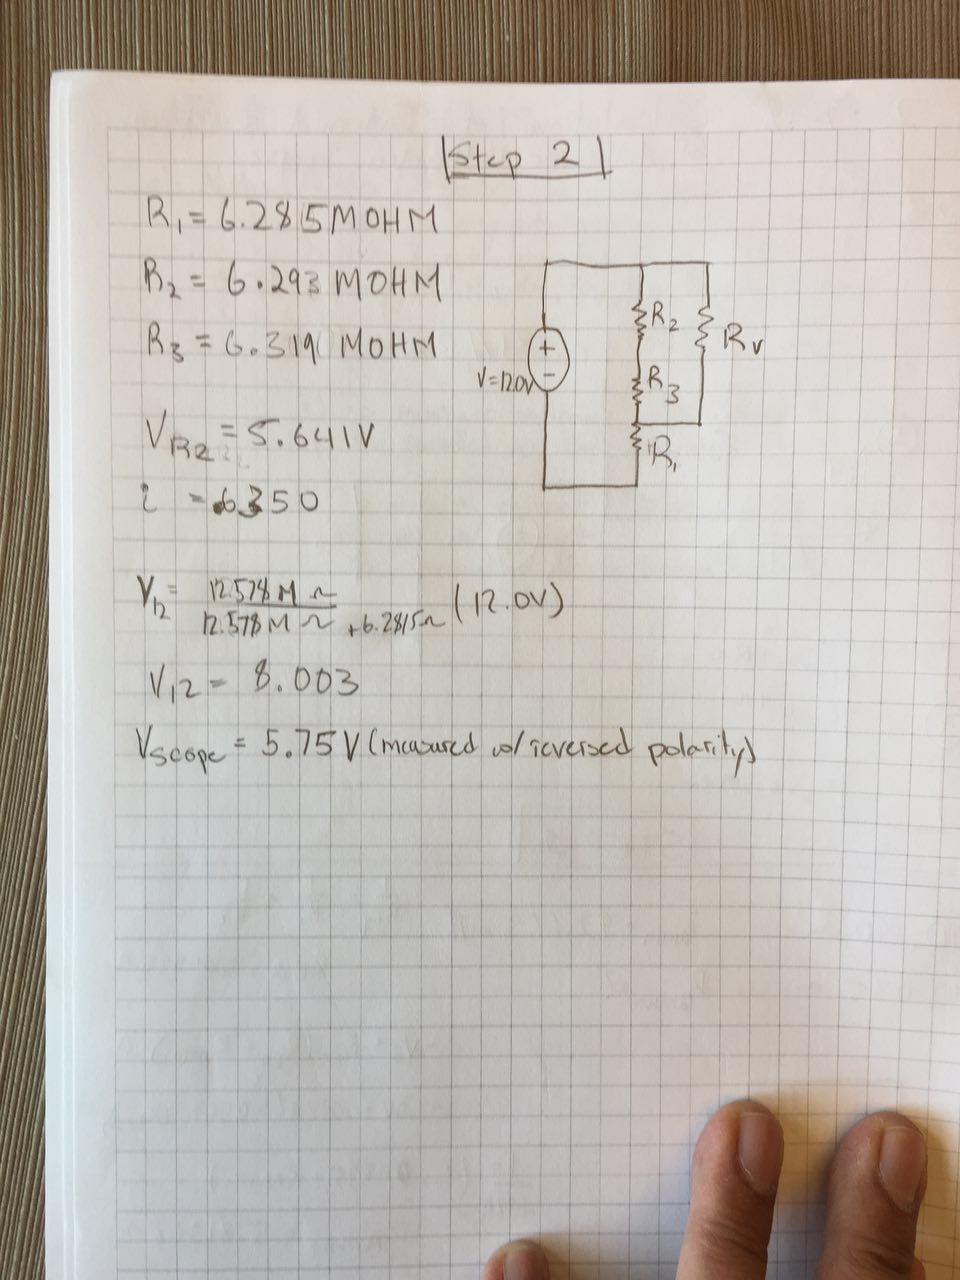 Step 2
R₁ = 6.285 MOHM
R₂ = 6.293 MOHM
R₃ = 6.319 MOHM
V=12.0V
R₂
R₃
R₁
Rᵥ
V_R2 = 5.641V
i = .6350
V₁₂ = 12.578M Ω / 12.578M Ω + 6.2815Ω (12.0V)
V₁₂ = 8.003
Vscope = 5.75V (measured w/ reversed polarity)